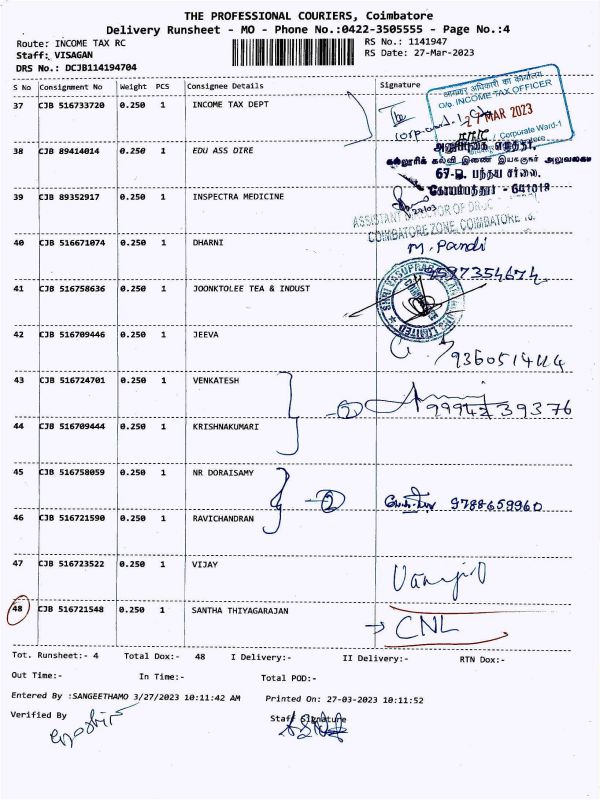 THE PROFESSIONAL COURIERS, Coimbatore
Delivery Runsheet - MO - Phone No.:0422-3505555 - Page No.:4
Route: INCOME TAX RC RS No.: 1141947
Staff: VISAGAN RS Date: 27-Mar-2023
DRS No.: DCJB114194704
S No Consignment No Weight PCS Consignee Details Signature
आयकर अधिकारी का कार्यालय
O/o. INCOME TAX OFFICER
37 CJB 516733720 0.250 1 INCOME TAX DEPT
27 MAR 2023
Corporate Ward-1
38 CJB 89414014 0.250 1 EDU ASS DIRE
கல்லூரிக் கல்வி இணை இயக்குநர் அலுவலகம்
67-ஐ, பந்தய சாலை,
கோயம்புத்தூர் - 641018
39 CJB 89352917 0.250 1 INSPECTRA MEDICINE
27/03
ASSISTANT DIRECTOR OF DRUG
COIMBATORE ZONE, COIMBATORE 18.
40 CJB 516671074 0.250 1 DHARNI M. Pandi
9597354674
41 CJB 516758636 0.250 1 JOONKTOLEE TEA & INDUST
42 CJB 516709446 0.250 1 JEEVA
9360514114
43 CJB 516724701 0.250 1 VENKATESH
- ② 9994239376
44 CJB 516709444 0.250 1 KRISHNAKUMARI
45 CJB 516758059 0.250 1 NR DORAISAMY
- ② 9788659960
46 CJB 516721590 0.250 1 RAVICHANDRAN
47 CJB 516723522 0.250 1 VIJAY
48 CJB 516721548 0.250 1 SANTHA THIYAGARAJAN
→ CNL
Tot. Runsheet:- 4 Total Dox:- 48 I Delivery:- II Delivery:- RTN Dox:-
Out Time:- In Time:- Total POD:-
Entered By :SANGEETHAMO 3/27/2023 10:11:42 AM Printed On: 27-03-2023 10:11:52
Verified By Staff Signature